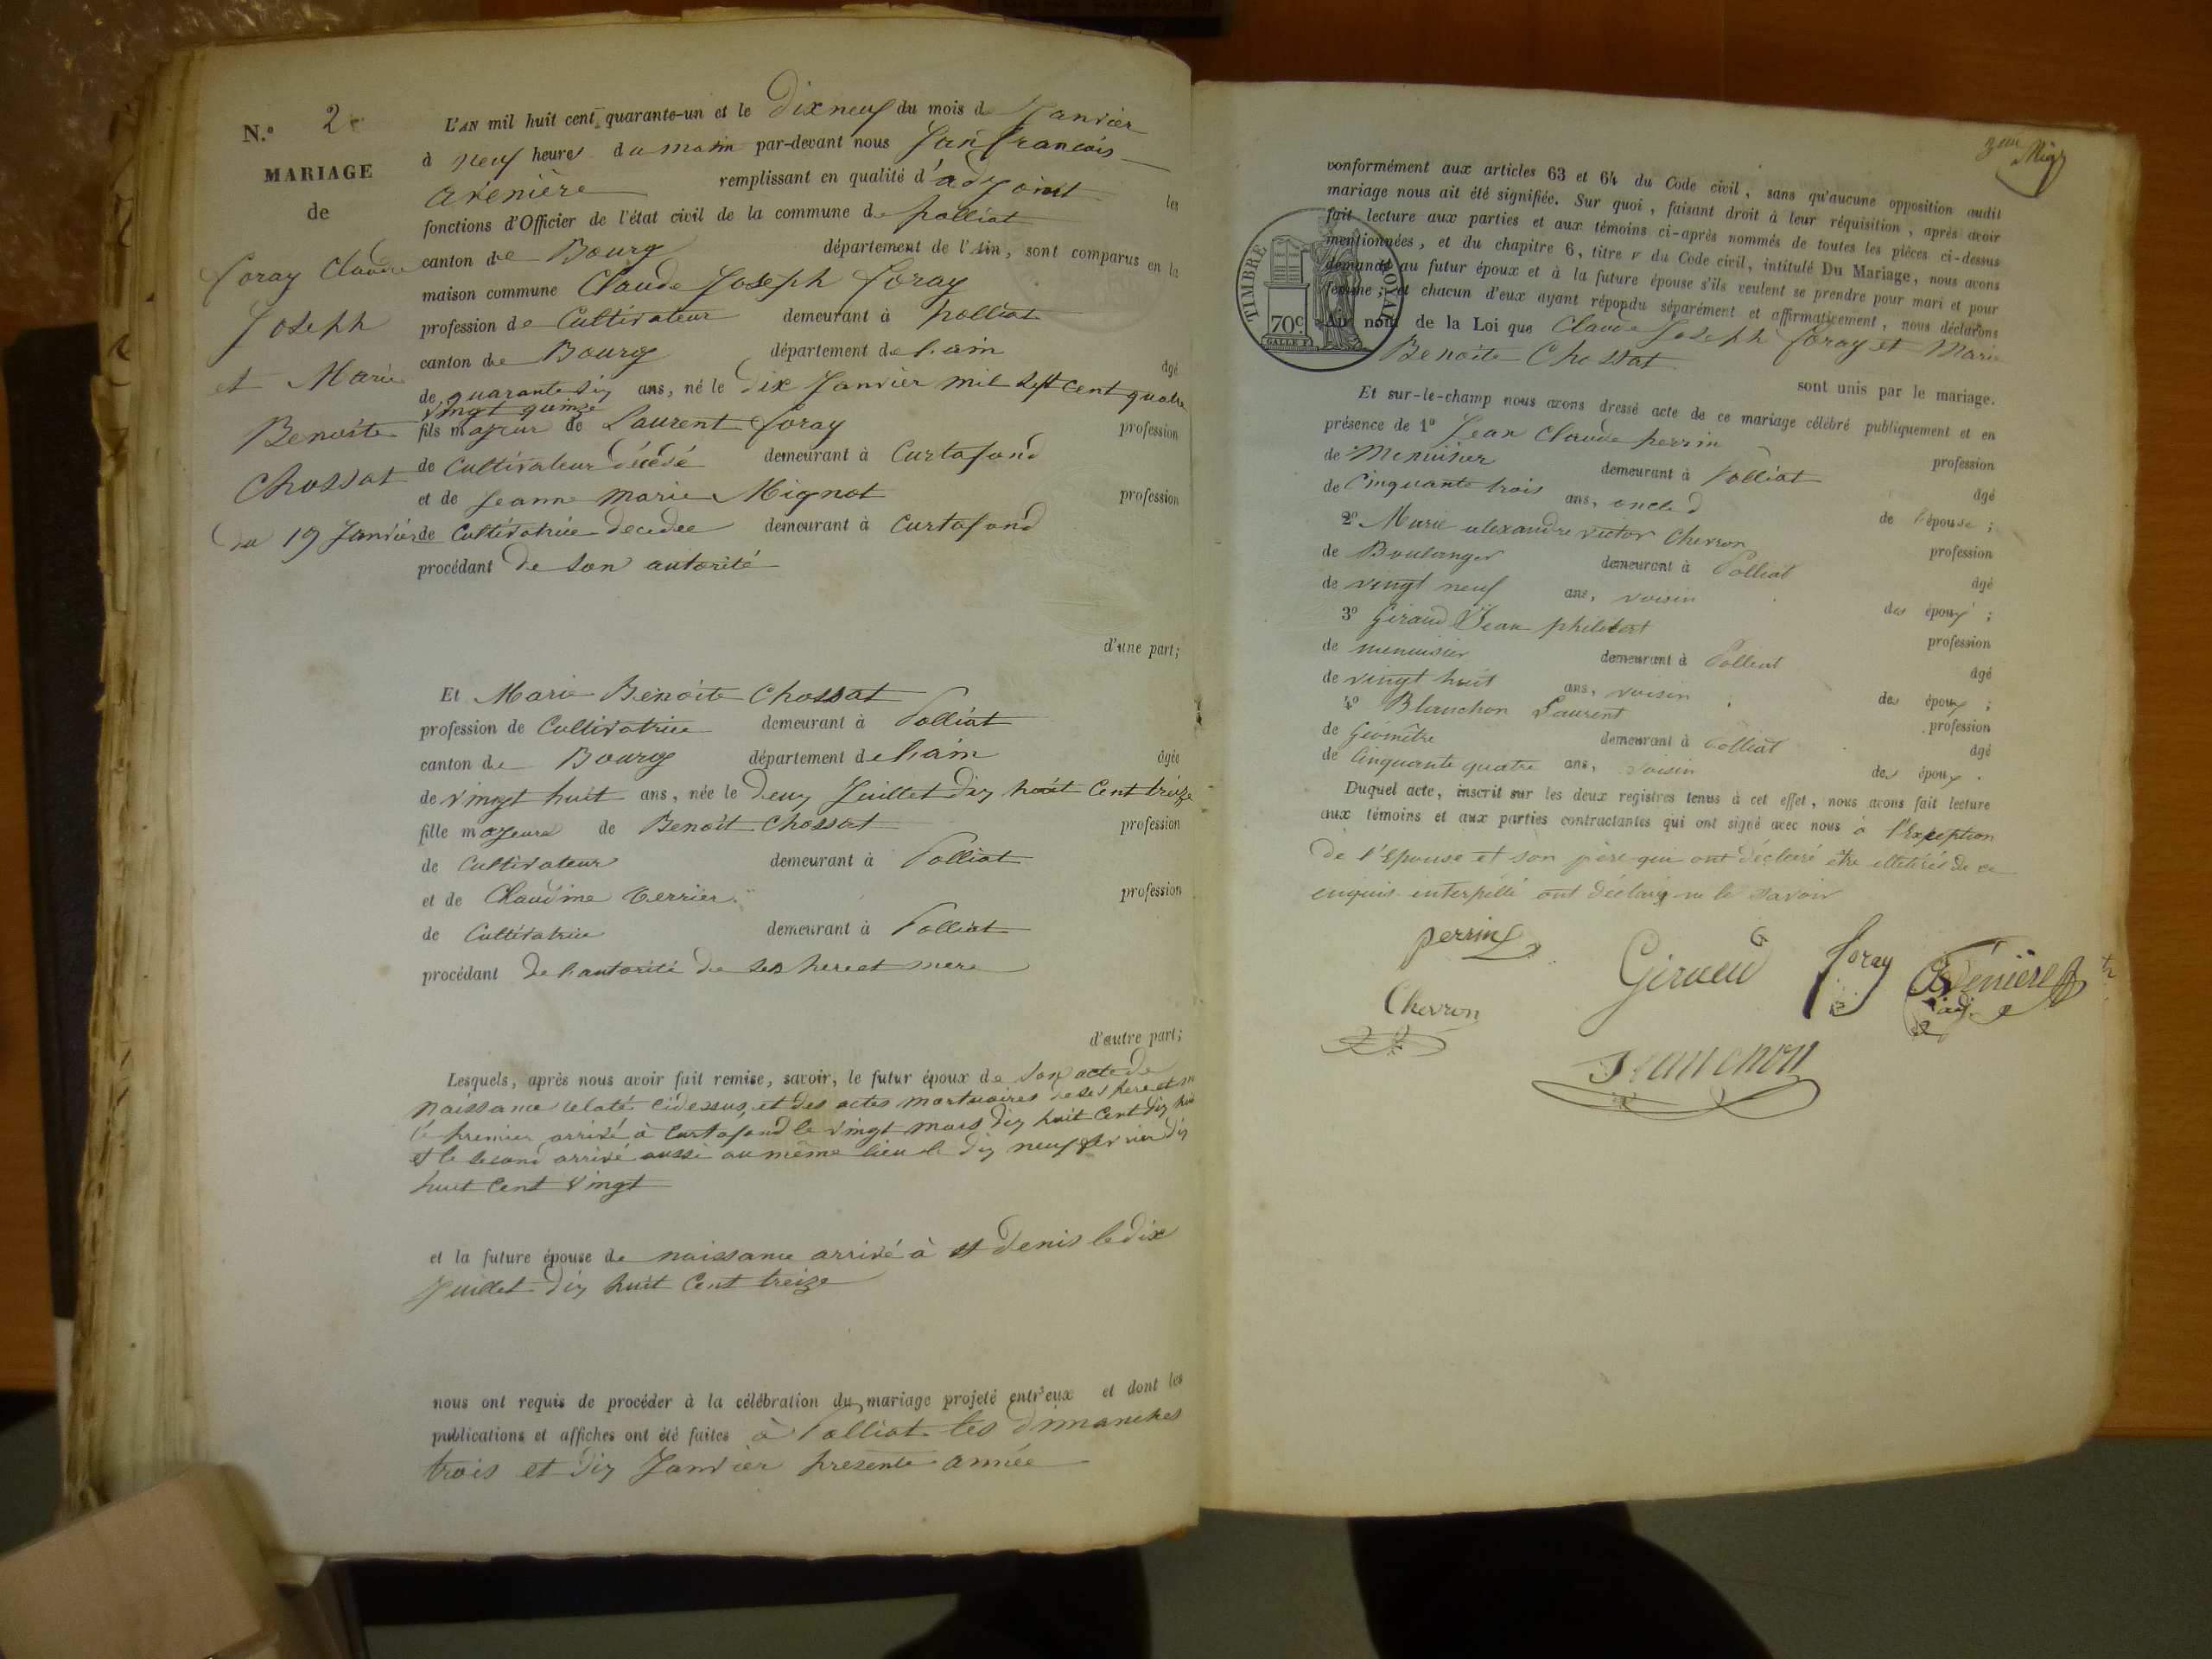 N.º 2
MARIAGE
de
Foray Claude
Joseph
et Marie
Benoite
Chossat
du 19 Janvier
L'AN mil huit cent quarante-un et le dix neuf du mois de Janvier
à neuf heures du matin par-devant nous Jean françois
avenière remplissant en qualité d'adjoint les
fonctions d'Officier de l'état civil de la commune de polliat
canton de Bourg département de l'Ain, sont comparus en la
maison commune Claude Joseph foray
profession de Cultivateur demeurant à polliat
canton de Bourg département de l'ain âgé
de quarante six ans, né le dix Janvier mil sept cent quatre
vingt quinze
fils majeur de Laurent foray profession
de Cultivateur décédé demeurant à Curtafond
et de jeanne marie Mignot profession
de Cultivatrice decedee demeurant à Curtafond
procédant de son autorité
d'une part;
Et Marie Benoite Chossat
profession de Cultivatrice demeurant à Polliat
canton de Bourg département de l'ain âgée
de vingt huit ans, née le deux Juillet dix huit Cent treize
fille majeure de Benoit Chossat profession
de Cultivateur demeurant à Polliat
et de Claudine Verrier profession
de Cultivatrice demeurant à Polliat
procédant de l'autorité de ses pere et mere
d'autre part;
Lesquels, après nous avoir fait remise, savoir, le futur époux de son acte de
naissance relaté cidessus et des actes mortuaires de ses pere et m
le premier arrivé à Curtafond le vingt mars dix huit Cent dix huit
et le second arrivé aussi au même lieu le dix neuf fevrier dix
huit Cent vingt
et la future épouse de naissance arrivé à st denis le dix
Juillet dix huit Cent treize
nous ont requis de procéder à la célébration du mariage projeté entr'eux et dont les
publications et affiches ont été faites à Polliat les dimanches
trois et dix Janvier presente année
conformément aux articles 63 et 64 du Code civil, sans qu'aucune opposition audit
mariage nous ait été signifiée. Sur quoi, faisant droit à leur réquisition, après avoir
fait lecture aux parties et aux témoins ci-après nommés de toutes les pièces ci-dessus
mentionnées, et du chapitre 6, titre v du Code civil, intitulé Du Mariage, nous avons
demandé au futur époux et à la future épouse s'ils veulent se prendre pour mari et pour
femme; et chacun d'eux ayant répondu séparément et affirmativement, nous déclarons
Au nom de la Loi que Claude Joseph foray et Marie
Benoite Chossat
sont unis par le mariage.
TIMBRE ROYAL
70c
Et sur-le-champ nous avons dressé acte de ce mariage célébré publiquement et en
présence de 1º Jean Claude perrin profession
de Menuisier demeurant à Polliat âgé
de Cinquante trois ans, oncle d de l'épouse;
2º Marie alexandre victor Chevron profession
de Boulanger demeurant à Polliat âgé
de vingt neuf ans, voisin des époux;
3º Giraud Jean philibert profession
de menuisier demeurant à Polliat âgé
de vingt huit ans, voisin des époux;
4º Blanchon Laurent profession
de Géomètre demeurant à Polliat âgé
de Cinquante quatre ans, voisin des époux.
Duquel acte, inscrit sur les deux registres tenus à cet effet, nous avons fait lecture
aux témoins et aux parties contractantes qui ont signé avec nous à l'exception
de l'épouse et son père qui ont déclaré être illetirés de ce
enquis interpéllé ont déclaré ne le savoir
perrin
Giraud
foray
Avenière
adj.
Chevron
Blanchon